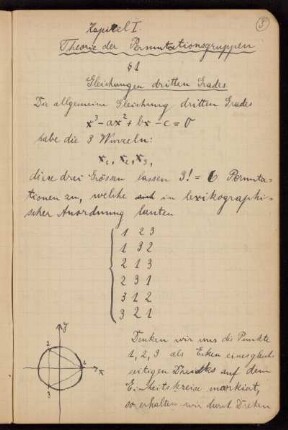 3)
Kapitel I.
Theorie der Permutationsgruppen
§ 1
Gleichungen dritten Grades.
Die allgemeine Gleichung dritten Grades
x³ - ax² + bx - c = 0
habe die 3 Wurzeln:
x₁, x₂, x₃,
diese drei Grössen lassen 3! = 6 Permuta-
tionen zu, welche in lexikographi-
scher Anordnung lauten
1 2 3
1 3 2
2 1 3
2 3 1
3 1 2
3 2 1
Denken wir uns die Punkte
1, 2, 3 als Ecken eines gleich-
seitigen Dreiecks auf dem
Einheitskreise markiert,
so erhalten wir durch Drehen
y
x
2
1
3